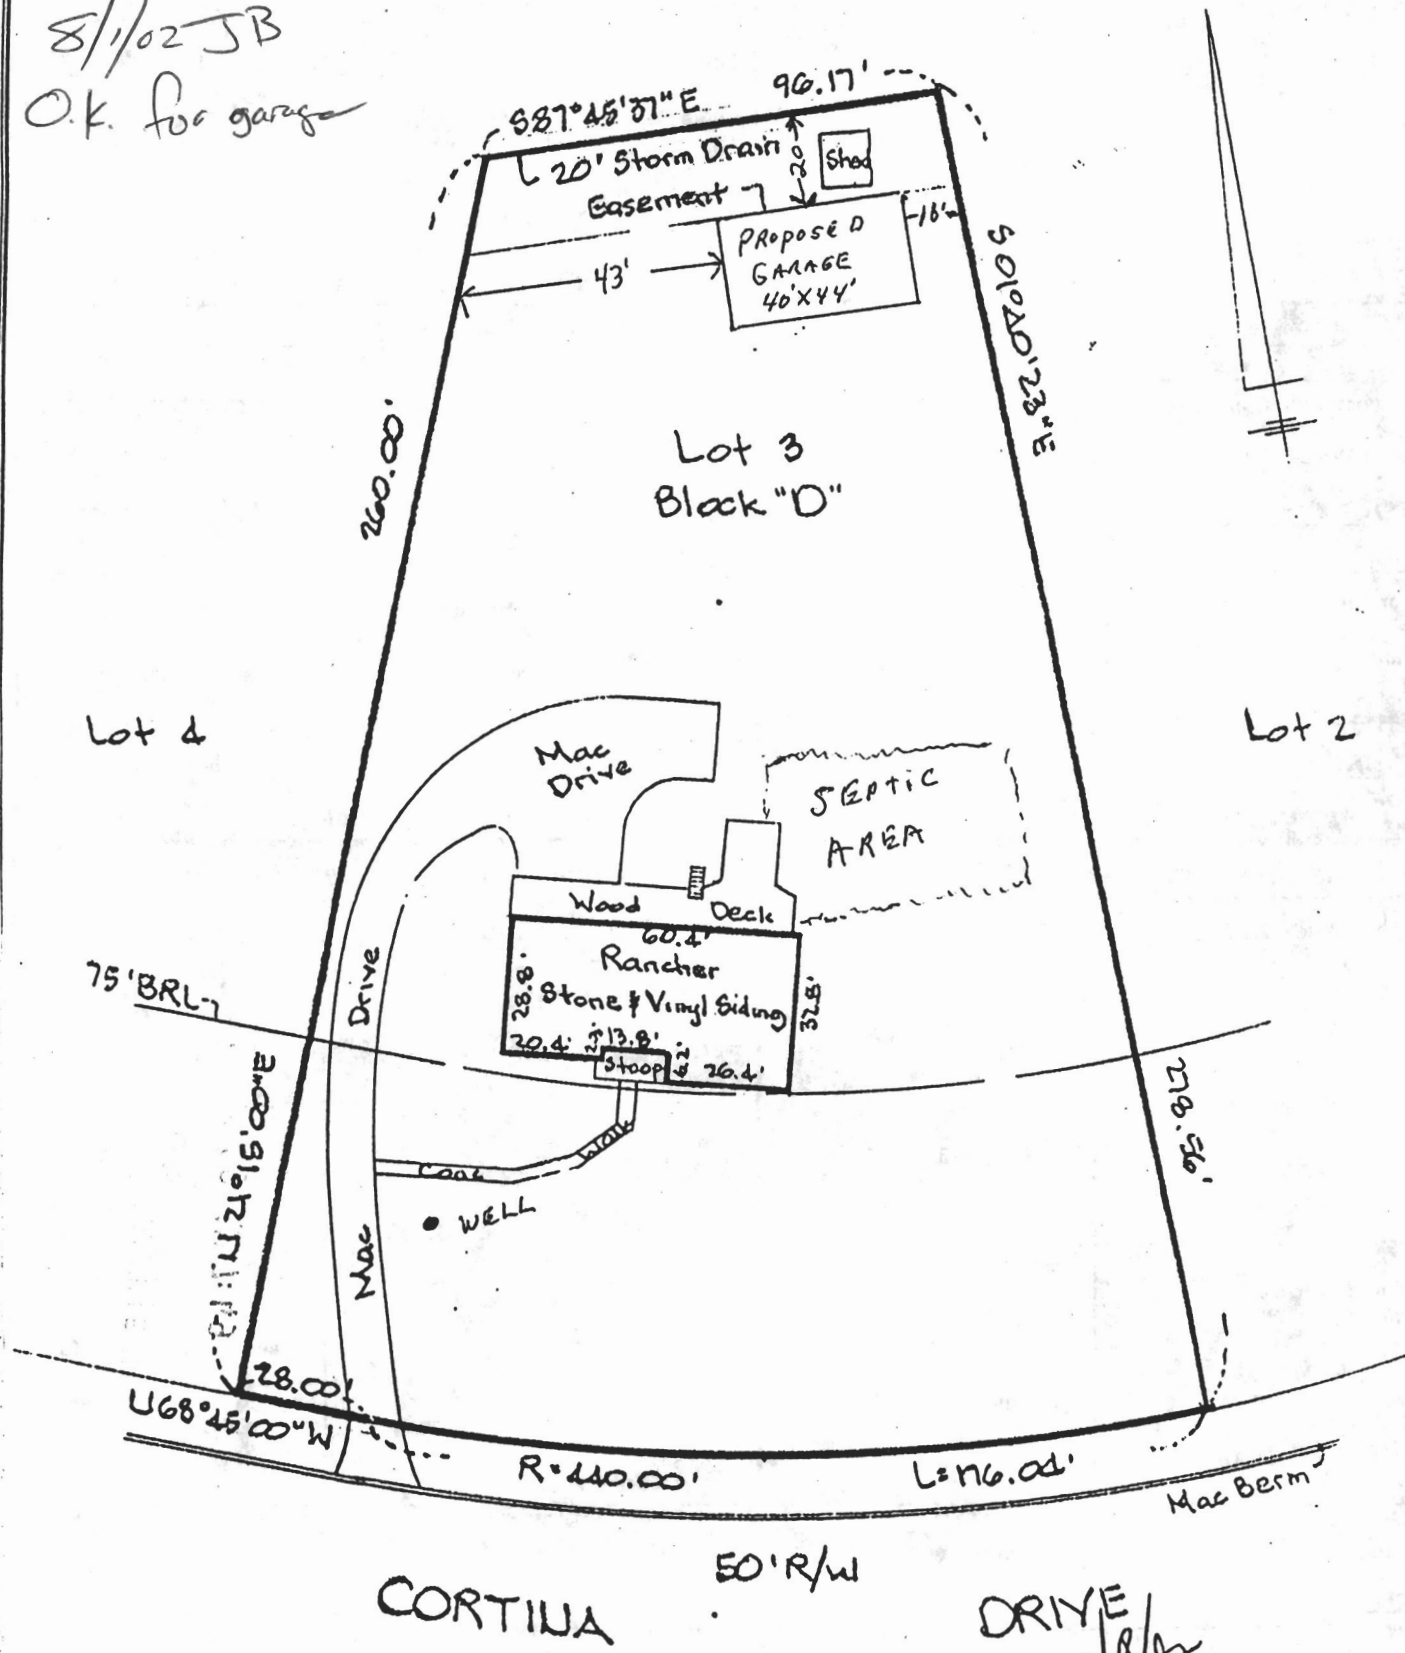 8/1/02 JB
O.K. for garage
S87°45'37"E 96.17'
20' Storm Drain
Easement
20'
Shed
PROPOSED
GARAGE
40'X44'
16'
43'
S01°20'23"E
260.00'
Lot 3
Block "D"
Lot 4
Lot 2
Mac
Drive
SEPTIC
AREA
Wood Deck
60.4'
Rancher
Stone & Vinyl Siding
28.8'
32.8'
20.4'
13.8'
Stoop
26.4'
75' BRL
Mac Drive
Conc Walk
WELL
N21°15'00"E
278.56'
28.00'
N68°45'00"W
R=440.00'
L=176.04'
Mac Berm
50' R/W
CORTINA DRIVE